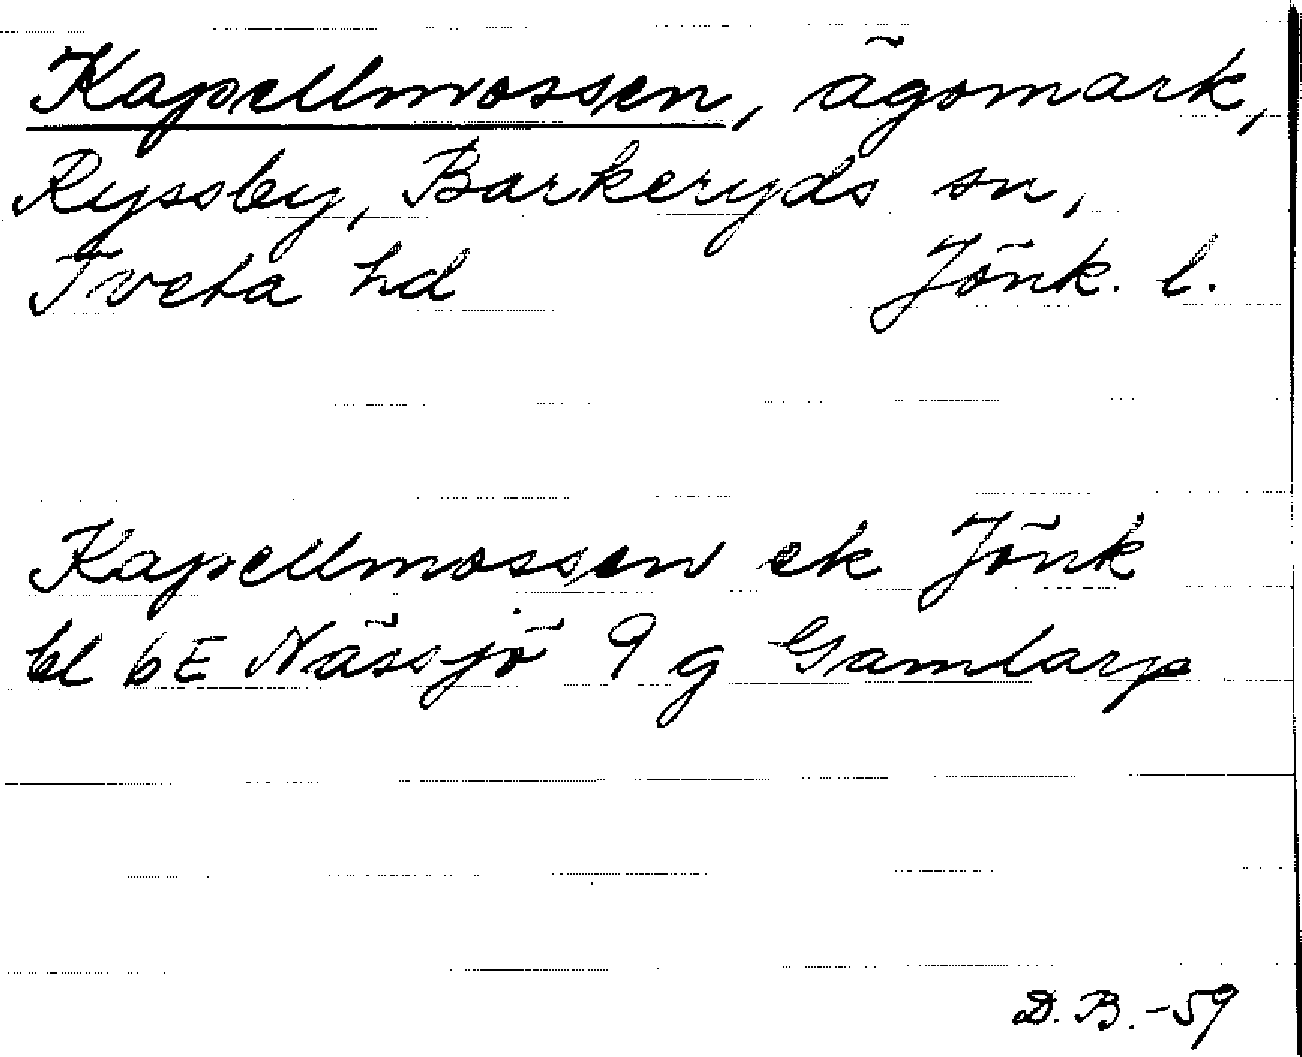 Kapellmossen, ägomark,
Ryssby, Barkeryds sn,
Tveta hd Jönk. l.
Kapellmossen ek Jönk
bl 6E Nässjö 9 g Gamlarp
D. B. -59